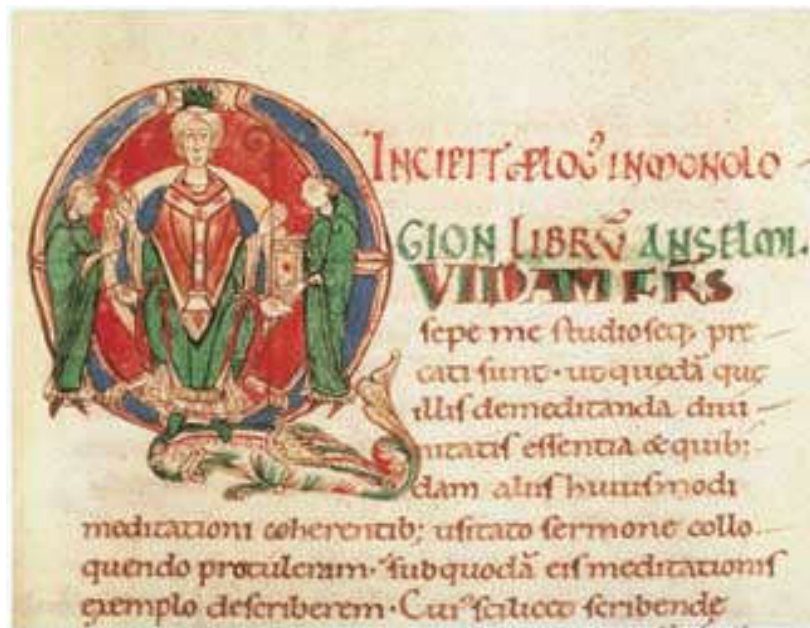 INCIPIT PLOG' IN MONOLO
GION LIBRŪ ANSELMI.
QUIDAM FRS
sepe me studioseq; pre
cati sunt · ut quedā que
illis de meditanda divi
nitatis essentia & quib;
dam aliis huiusmodi
meditationi coherentib; usitato sermone collo
quendo protuleram · sub quodā eis meditationis
exemplo describerem · Cui' scilicet scribende